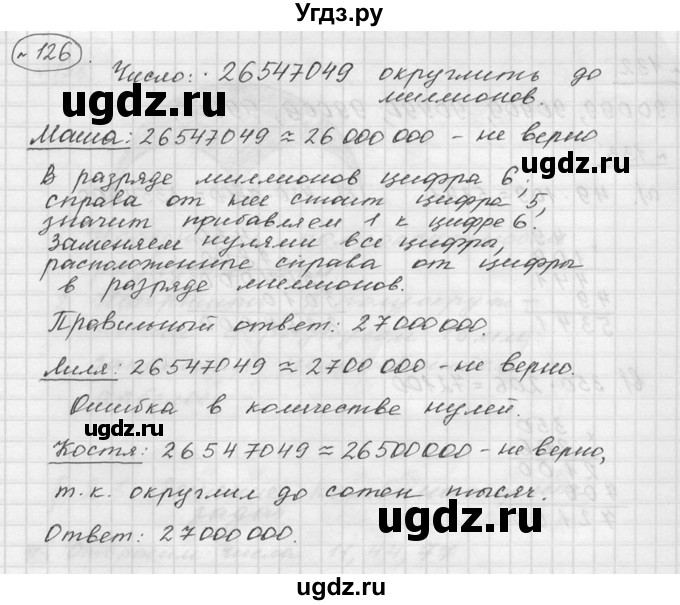 Угдз.ру
№ 126.
Число: 26547049 округлить до
миллионов
ugdz.ru
ugdz.ru
Маша: 26547049 ≈ 26 000 000 - не верно
В разряде миллионов цифра 6,
справа от нее стоит цифра 5,
значит прибавляем 1 к цифре 6.
Заменяем нулями все цифры,
расположенные справа от цифры
в разряде миллионов.
Правильный ответ: 27000000.
ugdz.ru
Лиля: 26547049 ≈ 2700 000 - не верно.
Ошибка в количестве нулей.
ugdz.ru
Костя: 26547049 ≈ 26500000 - не верно,
т.к. округлил до сотен тысяч.
ugdz.ru
Ответ: 27000000.
ugdz.ru